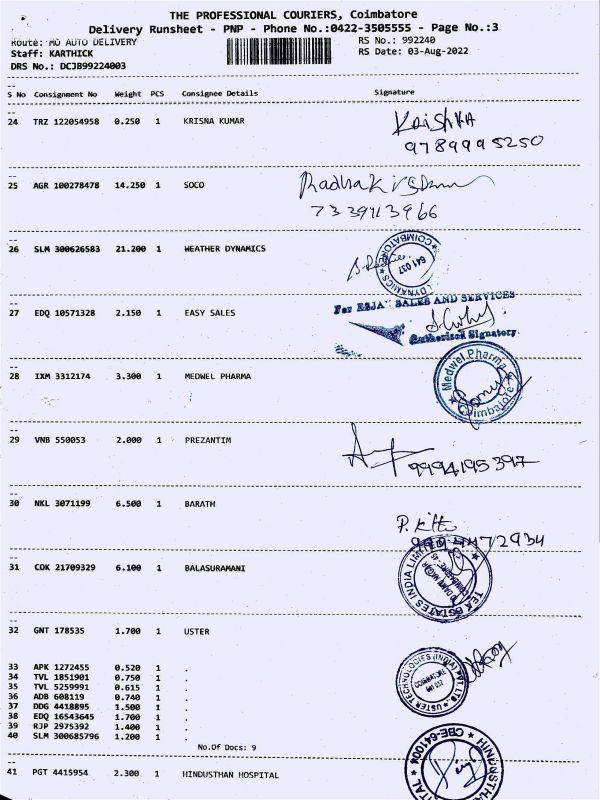 THE PROFESSIONAL COURIERS, Coimbatore
Delivery Runsheet - PNP - Phone No.:0422-3505555 - Page No.:3
Route: MO AUTO DELIVERY RS No.: 992240
Staff: KARTHICK RS Date: 03-Aug-2022
DRS No.: DCJB99224003
S No Consignment No Weight PCS Consignee Details Signature
24 TRZ 122054958 0.250 1 KRISNA KUMAR
9789995250
25 AGR 100278478 14.250 1 SOCO
26 SLM 300626583 21.200 1 WEATHER DYNAMICS
COIMBATORE 641 037 DYNAMICS
27 EDQ 10571328 2.150 1 EASY SALES
For SALES AND SERVICES
Authorized Signatory
28 IXM 3312174 3.300 1 MEDWEL PHARMA
Medwel Pharma Coimbatore
29 VNB 550053 2.000 1 PREZANTIM
9994195397
30 NKL 3071199 6.500 1 BARATH
31 COK 21709329 6.100 1 BALASURAMANI
ESTATES INDIA LIMITED
32 GNT 178535 1.700 1 USTER
USTER TECHNOLOGIES (INDIA) PVT LTD COIMBATORE 641 037
33 APK 1272455 0.520 1 .
34 TVL 1851901 0.750 1 .
35 TVL 5259991 0.615 1 .
36 ADB 608119 0.740 1 .
37 DDG 4418895 1.500 1 .
38 EDQ 16543645 1.700 1 .
39 RJP 2975392 1.400 1 .
40 SLM 300685796 1.200 1 .
No.Of Docs: 9
41 PGT 4415954 2.300 1 HINDUSTHAN HOSPITAL
CBE-641004